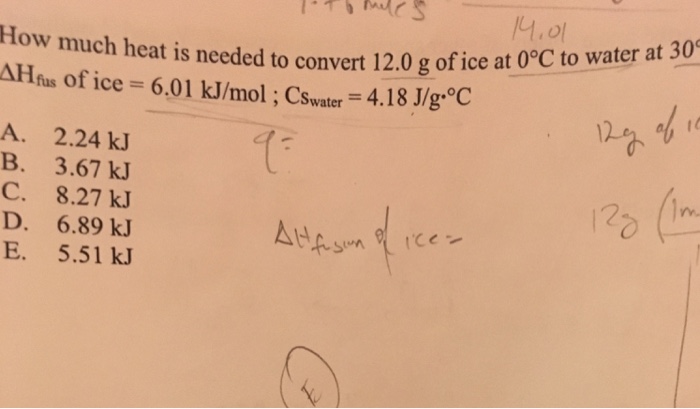 moles
14.01
How much heat is needed to convert 12.0 g of ice at 0°C to water at 30°
ΔHfus of ice = 6.01 kJ/mol ; Cswater = 4.18 J/g·°C
A. 2.24 kJ
B. 3.67 kJ
C. 8.27 kJ
D. 6.89 kJ
E. 5.51 kJ
q=
12g of ic
ΔHfusion of ice=
12g (1m
E